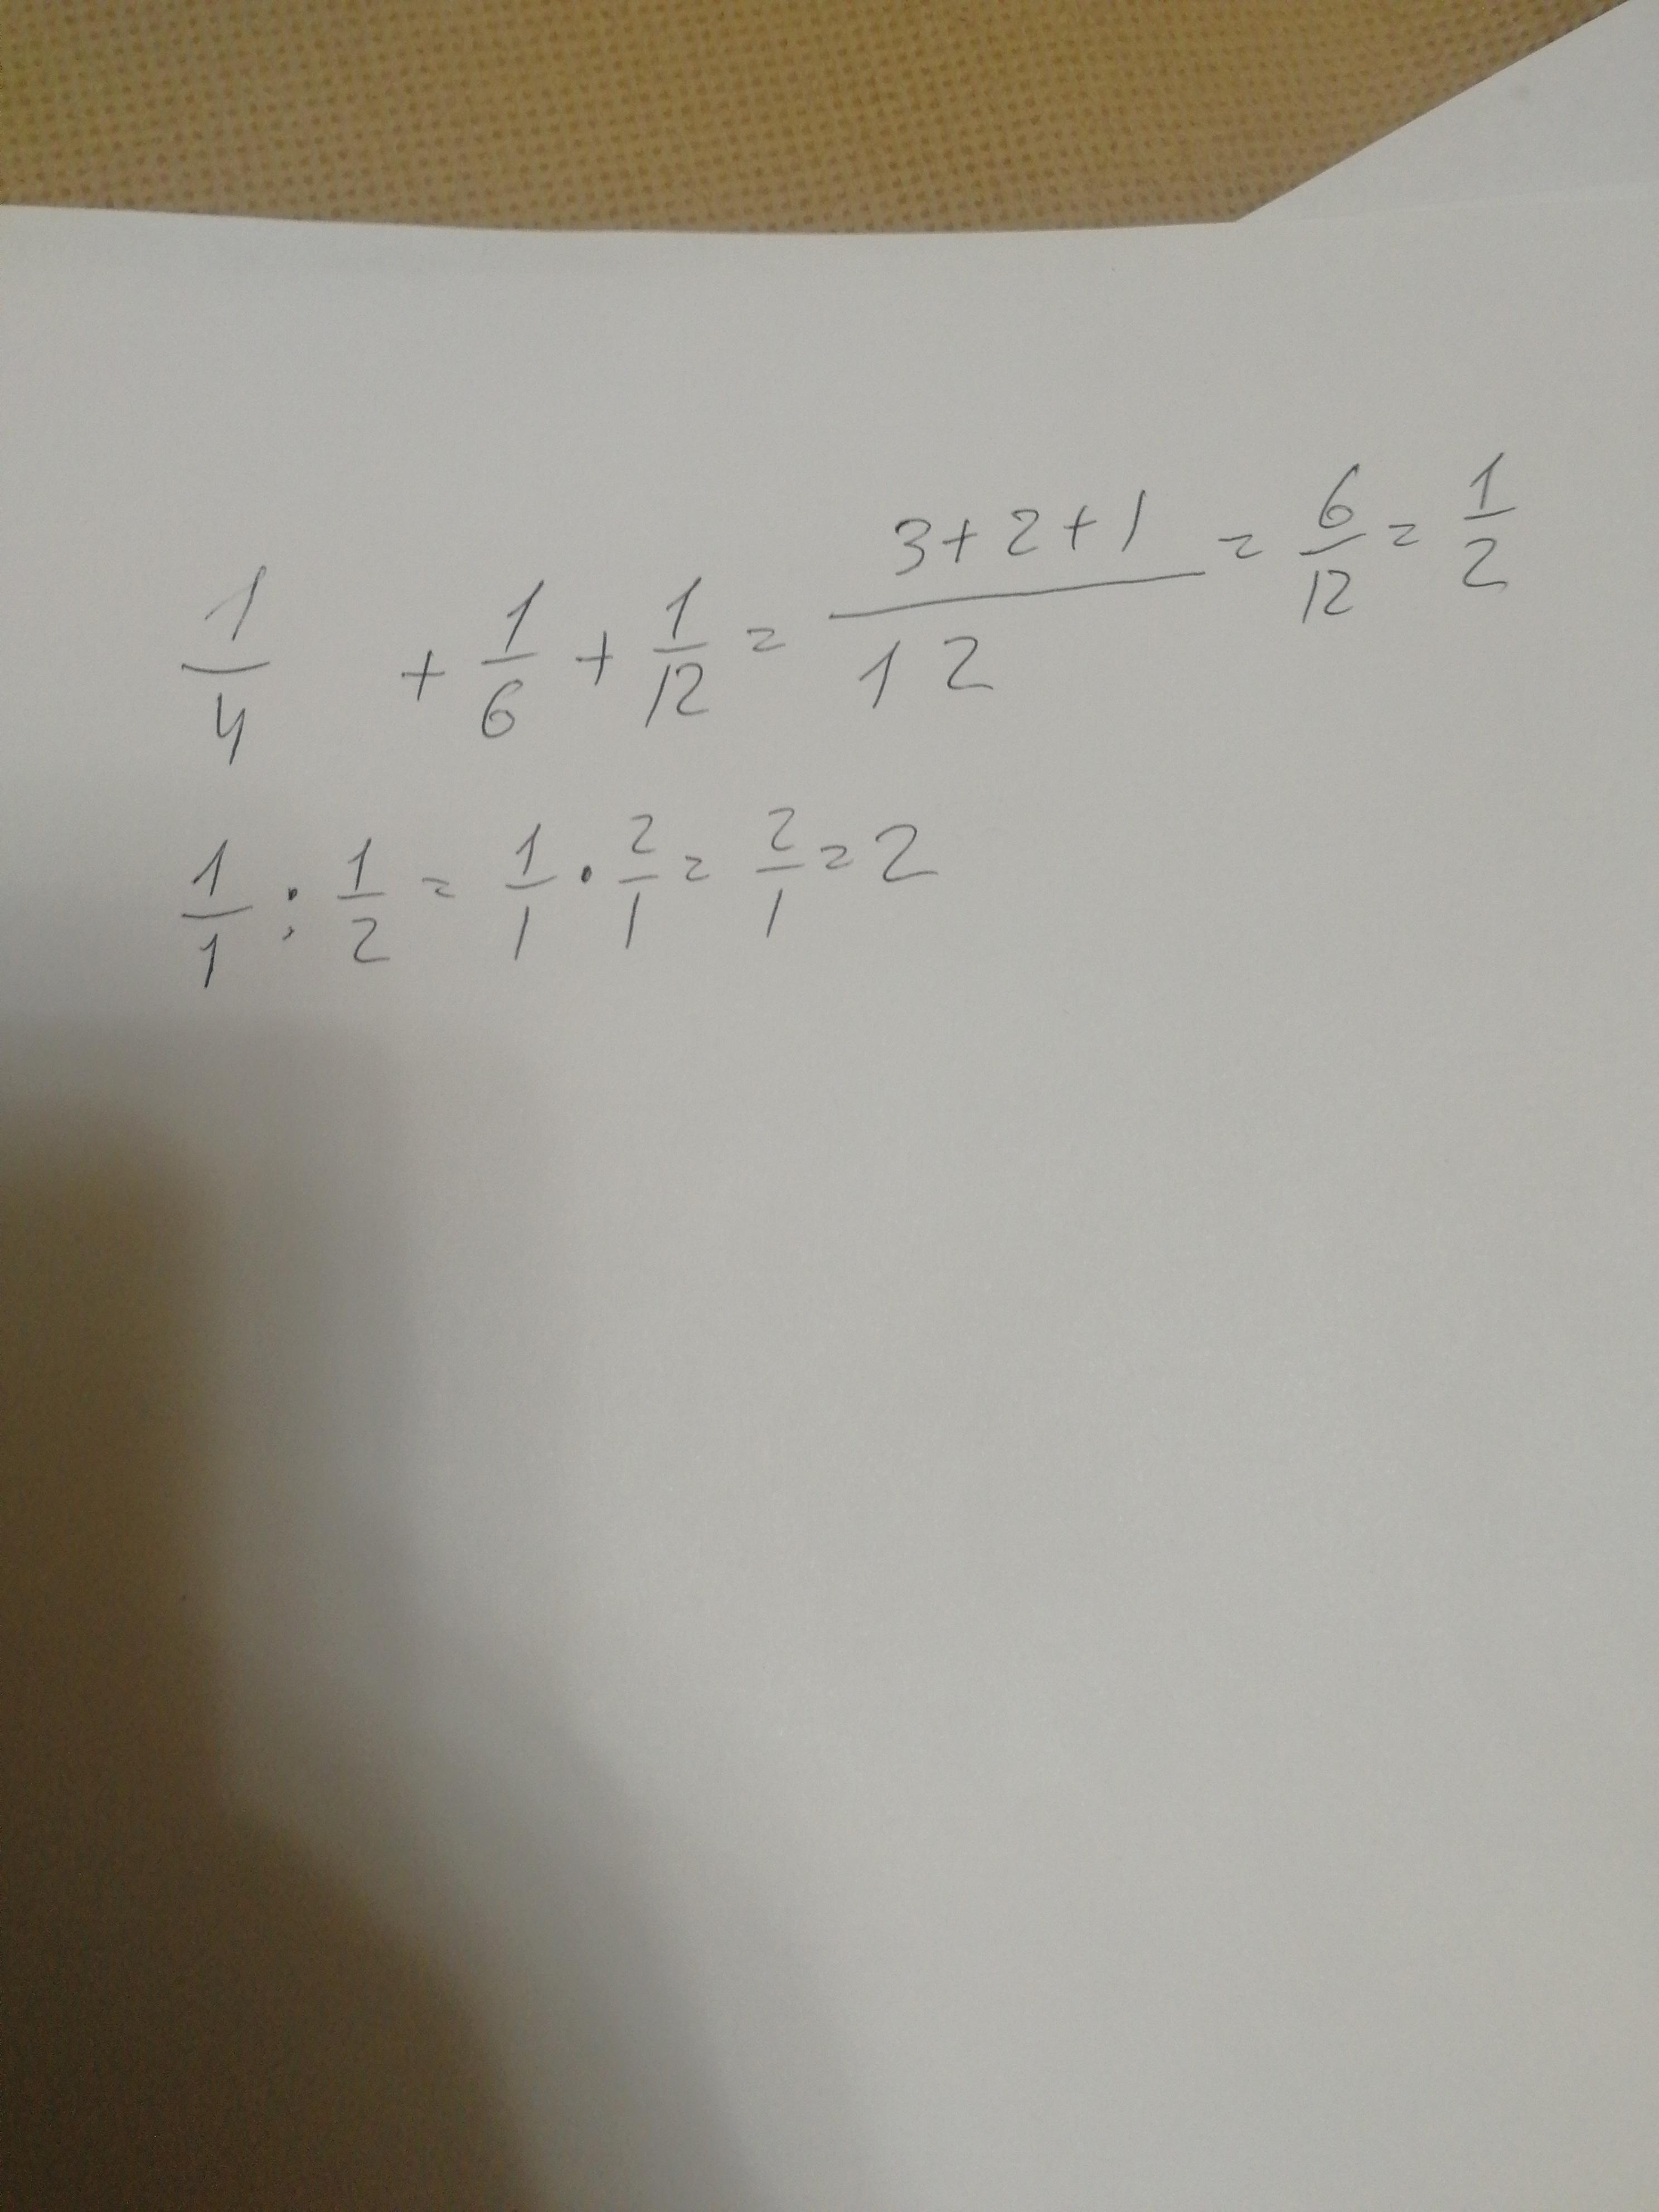 1/4 + 1/6 + 1/12 = (3+2+1)/12 = 6/12 = 1/2
1/1 : 1/2 = 1/1 · 2/1 = 2/1 = 2